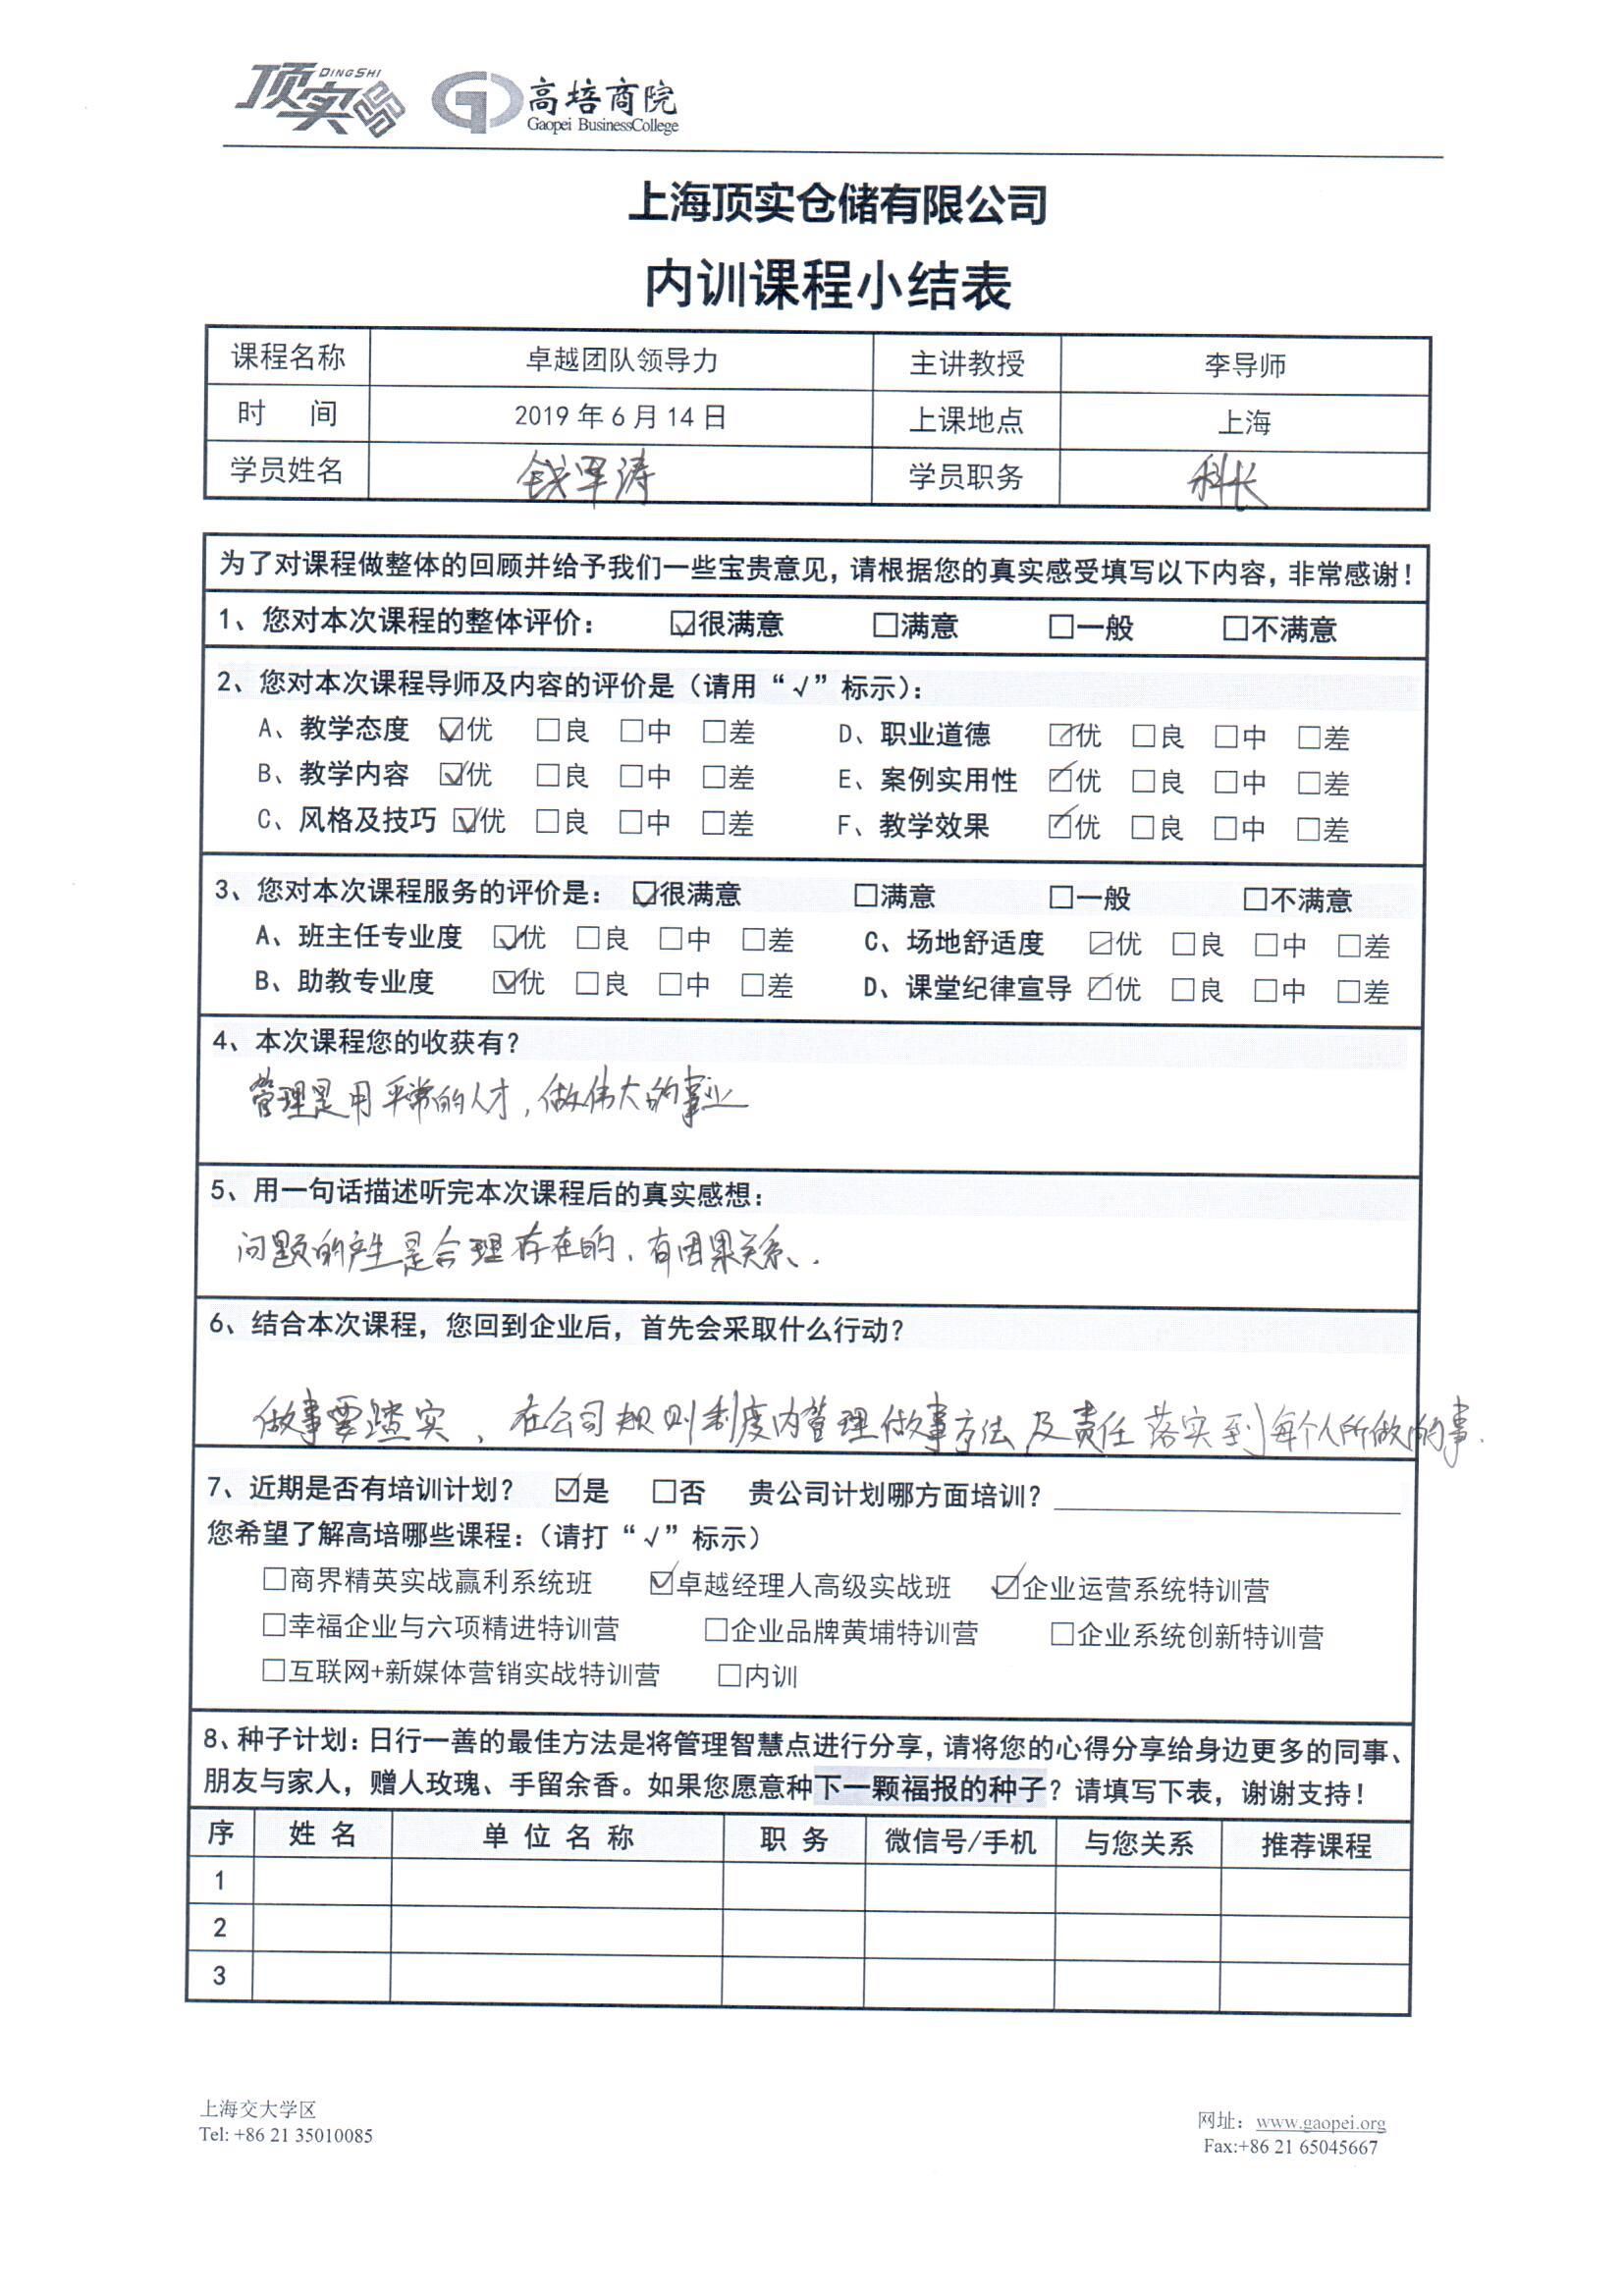 顶实 DINGSHI 高培商院
Gaopei BusinessCollege
上海顶实仓储有限公司
内训课程小结表
课程名称 卓越团队领导力 主讲教授 李导师
时 间 2019年6月14日 上课地点 上海
学员姓名 钱军涛 学员职务 科长
为了对课程做整体的回顾并给予我们一些宝贵意见，请根据您的真实感受填写以下内容，非常感谢！
1、您对本次课程的整体评价： ☑很满意 □满意 □一般 □不满意
2、您对本次课程导师及内容的评价是（请用“√”标示）：
A、教学态度 ☑优 □良 □中 □差 D、职业道德 ☑优 □良 □中 □差
B、教学内容 ☑优 □良 □中 □差 E、案例实用性 ☑优 □良 □中 □差
C、风格及技巧 ☑优 □良 □中 □差 F、教学效果 ☑优 □良 □中 □差
3、您对本次课程服务的评价是： ☑很满意 □满意 □一般 □不满意
A、班主任专业度 ☑优 □良 □中 □差 C、场地舒适度 ☑优 □良 □中 □差
B、助教专业度 ☑优 □良 □中 □差 D、课堂纪律宣导 ☑优 □良 □中 □差
4、本次课程您的收获有？
管理是用平常的人才，做伟大的事业
5、用一句话描述听完本次课程后的真实感想：
问题的产生是合理存在的、有因果关系．
6、结合本次课程，您回到企业后，首先会采取什么行动？
做事要踏实，在公司规则制度内管理做事方法及责任落实到每个人所做的事．
7、近期是否有培训计划？ ☑是 □否 贵公司计划哪方面培训？
您希望了解高培哪些课程：（请打“√”标示）
□商界精英实战赢利系统班 ☑卓越经理人高级实战班 ☑企业运营系统特训营
□幸福企业与六项精进特训营 □企业品牌黄埔特训营 □企业系统创新特训营
□互联网+新媒体营销实战特训营 □内训
8、种子计划：日行一善的最佳方法是将管理智慧点进行分享，请将您的心得分享给身边更多的同事、
朋友与家人，赠人玫瑰、手留余香。如果您愿意种下一颗福报的种子？请填写下表，谢谢支持！
序 姓名 单位名称 职务 微信号/手机 与您关系 推荐课程
1
2
3
上海交大学区 网址：www.gaopei.org
Tel: +86 21 35010085 Fax:+86 21 65045667